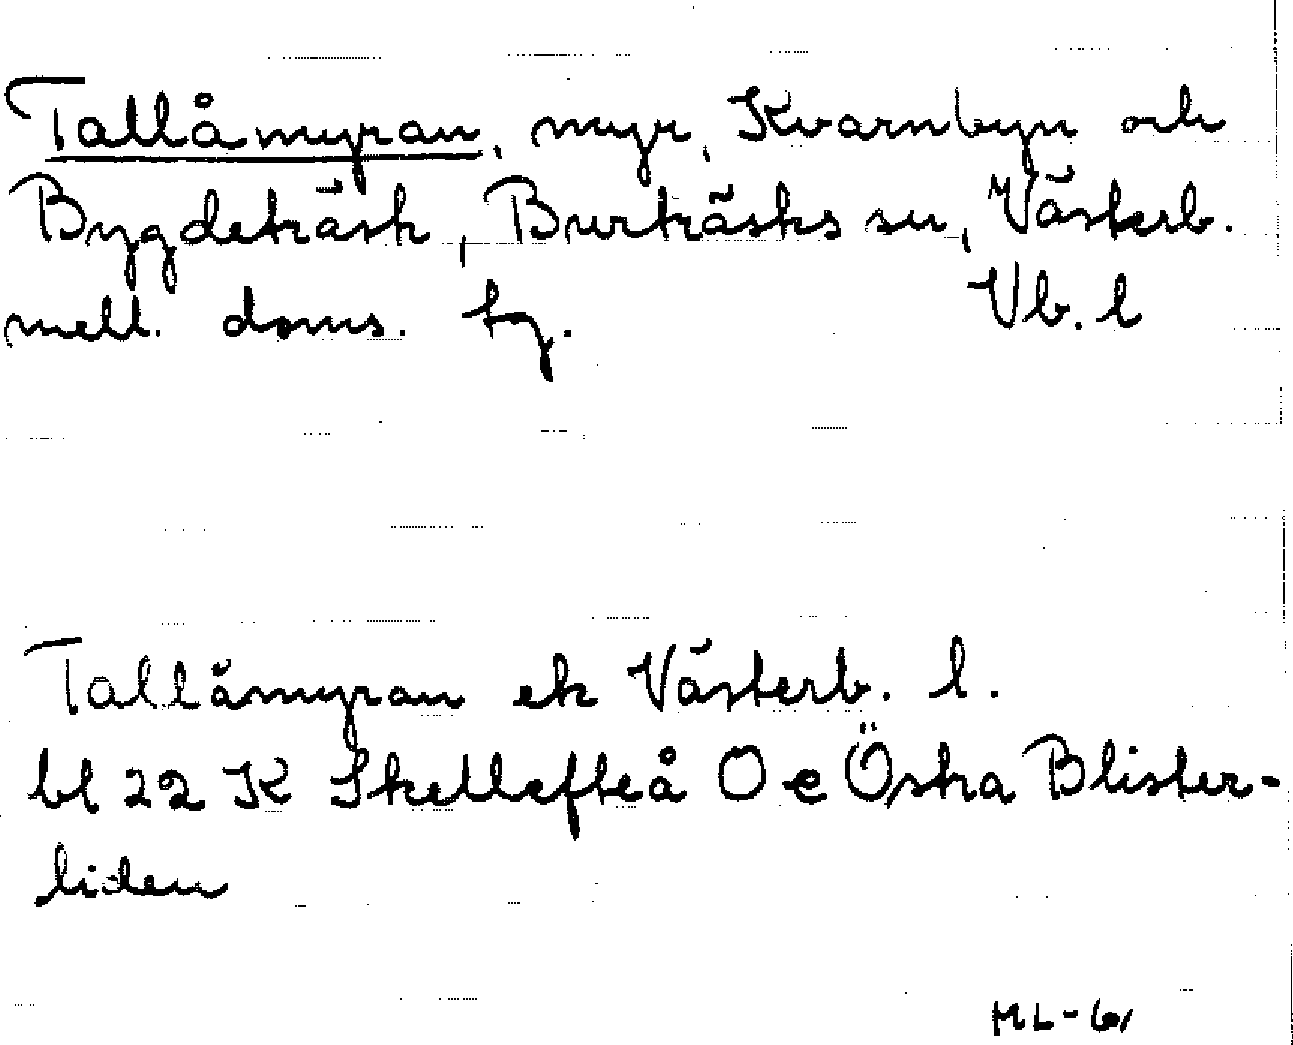 Tallåmyran, myr, Kvarnbyn och
Bygdeträsk, Burträsks sn, Västerb.
mell. doms. tg. Vb. l
Tallåmyran ek Västerb. l.
bl 22 K Skellefteå O e Östra Blister-
liden
ML-61